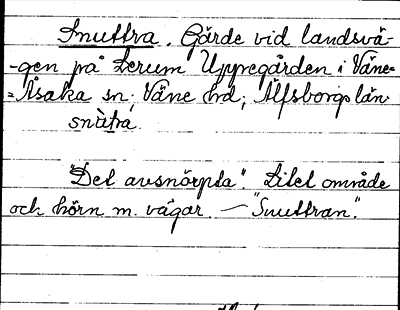 Snuttra. Gärde vid landsvä-
-gen på Lerum Uppregården i Väne-
=Åsaka sn; Väne hd; Älfsborgs län.
snùtra.
"Det avsnörpta". "Litet område
och hörn m. vägar. — Snuttran".